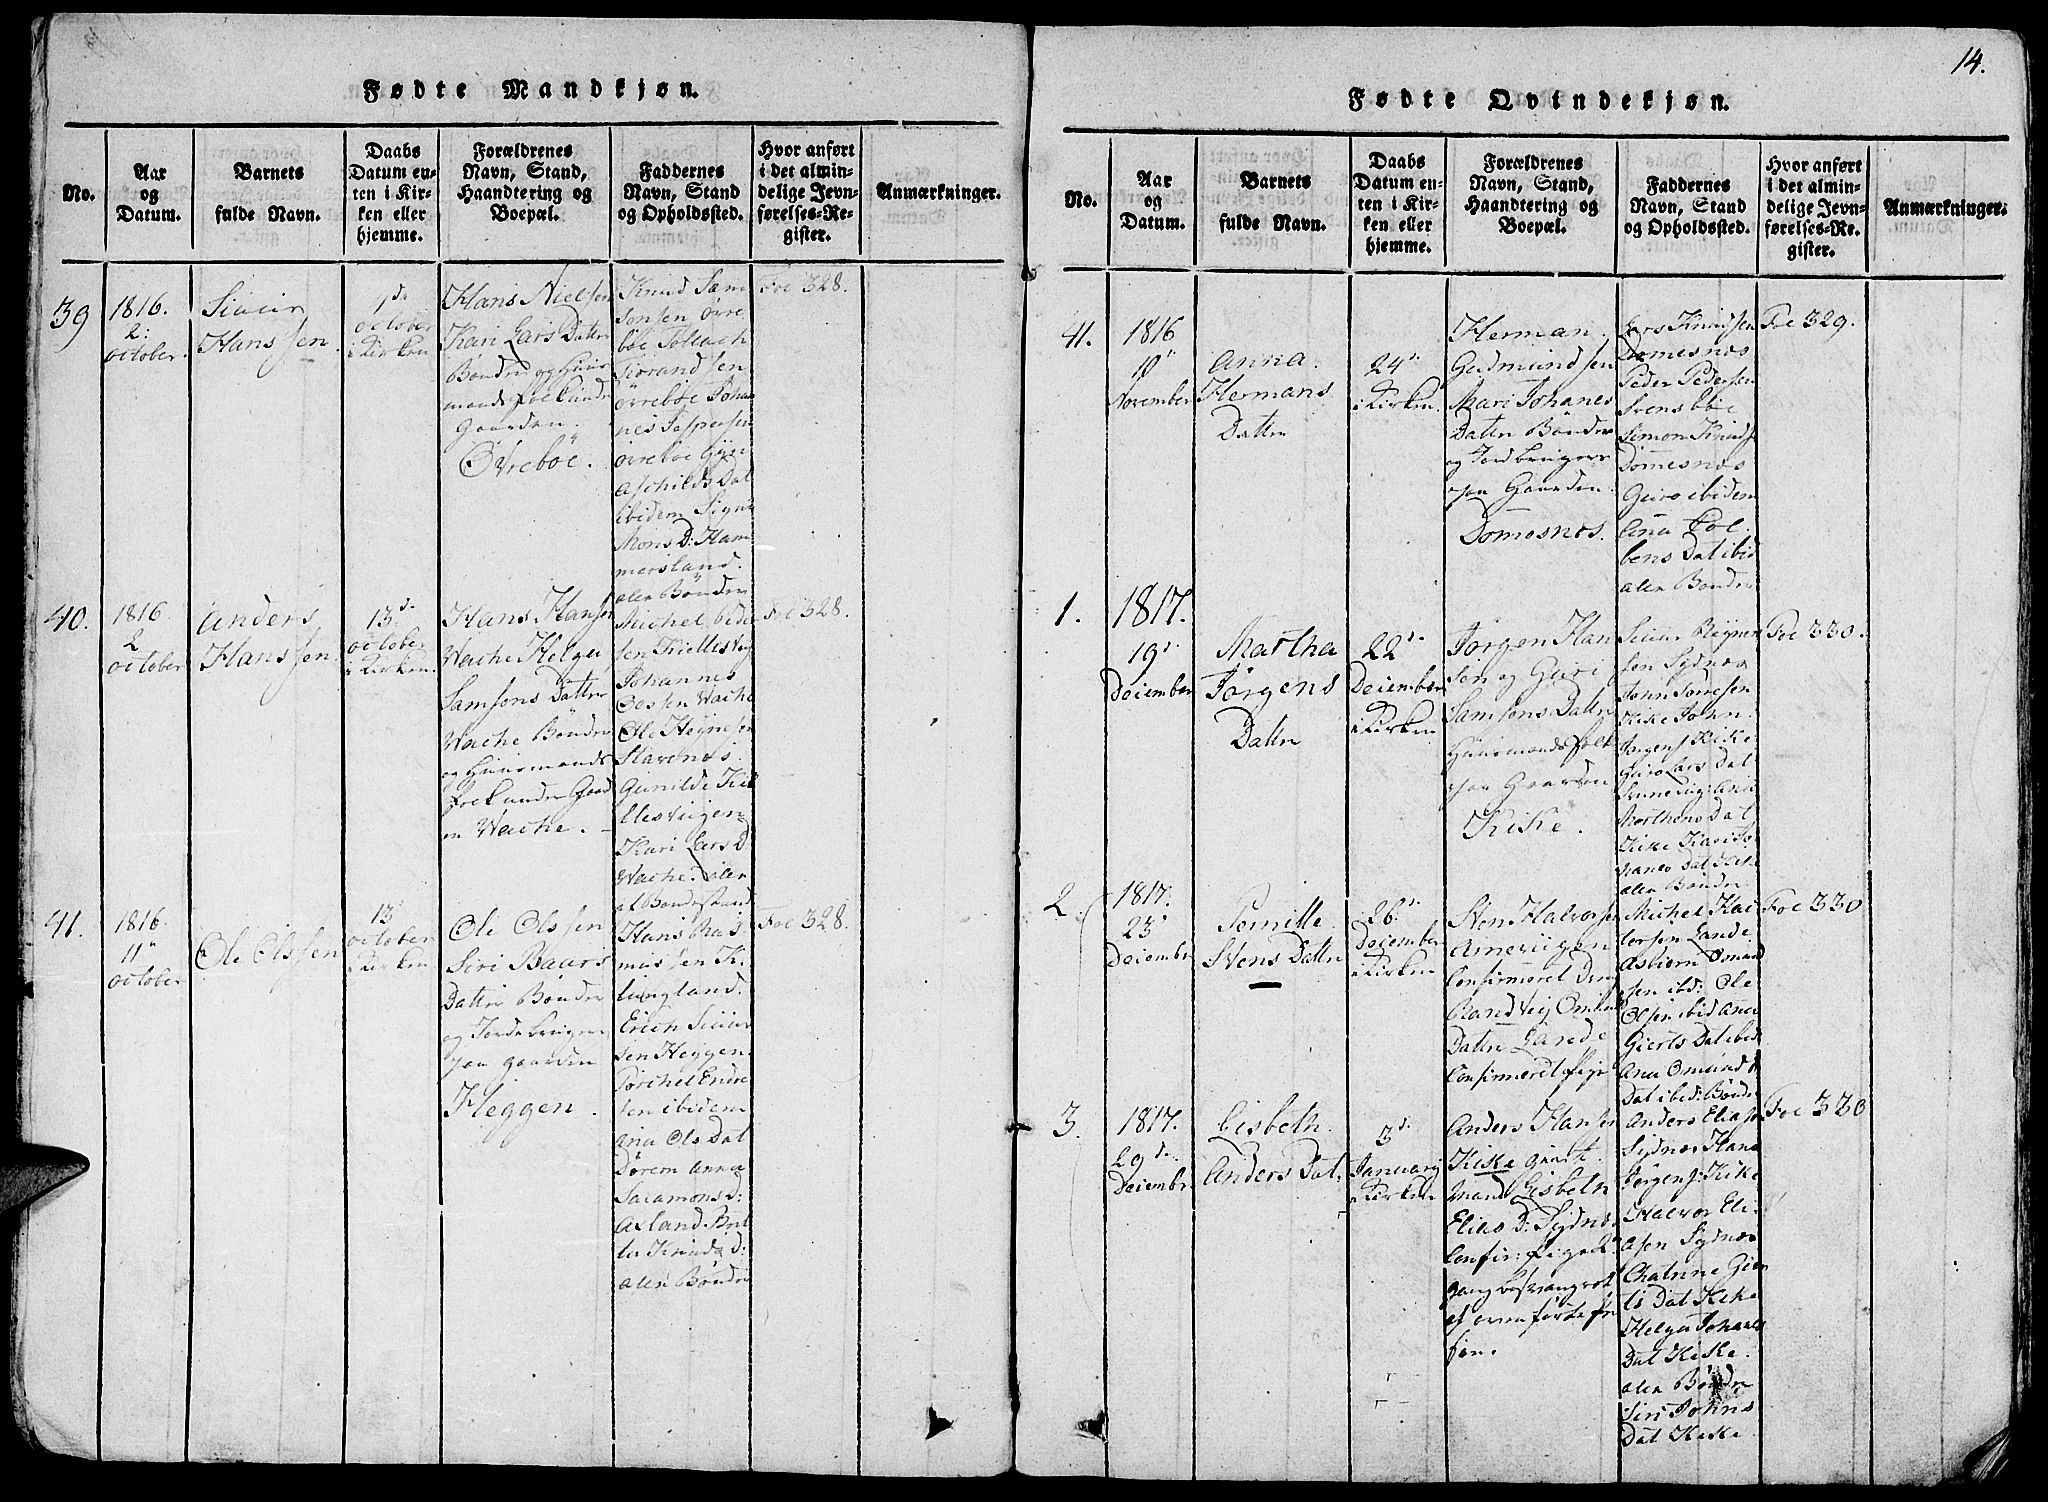 14.
Fødte Mandkjøn.
No.
Aar
og
Datum.
Barnets
fulde Navn.
Daabs
Datum en-
ten i Kir-
ken eller
hjemme.
Forældrenes
Navn, Stand,
Haandtering og
Boepæl.
Faddernes
Navn, Stand
og Opholdssted.
Hvor anført
i det almin-
delige Jevn-
førelses-Re-
gister.
Anmærkninger.
39
1816.
2:
october.
Siuur
Hanssen
october
i Kirken
Hans Nielsen
Kari Lars Datter
Bønder og Huus
mands folk under
Gaarden.
Øvrebøe.
Knud Sam
sonsen øvre
bøe Tollach
Siorandsen
øvrebøe Johan
nes Jespersen
øvrebøe Gyn
Aschilds Dat
ibidem Signe
Mons D: Ham
mersland.
alle Bønder
Foe 328.
40.
1816
2
october
Anders
Hanssen
13d
october
i Kirken
Hans Hansen
Wache Helga
Samsons Datter
Wache Bønder
og Huusmands
folk under Gaard
en Wache.
Johannes
Olssen Wache
Gunilde Kie
llesviigen
Kari Lars D
Wache. alle
af Bondestand
Foe 328.
41.
1816.
11
october
Ole Olssen
13
october
i Kirken
Ole Olssen
Siri Baars
Datter Bønder
og Jordebruger
paa gaarden
Heggen.
Hans Ras
mussen K.
lungland.
Erich Siuur
sen Heggen
Torchel Endre
sen ibidem
Ana Ols Dat
Dørem Anna
Salamons D:
Axland. Brit
ta Knuds D:
alle Bønder
Foe 328
Fødte Qvindekjøn.
No.
Aar
og
Datum.
Barnets
fulde Navn.
Daabs
Datum en-
ten i Kir-
ken eller
hjemme.
Forældrenes
Navn, Stand,
Haandtering og
Boepæl.
Faddernes
Navn, Stand
og Opholdssted.
Hvor anført
i det almin-
delige Jevn-
førelses-Re-
gister.
Anmærkninger.
41.
1816
10
November
Anna
Hermans
Datter
24
i Kirken.
Herman
Gudmundsen
Mari Johanes
Datter Bønder
og Jordbruger
paa Gaarden
Domesnos.
Lars Knudsen
Domesnos
Peder Pedersen
Svensbøe
Simon Knuds
Domesnos
Guro ibidem
Ana Col
bens Dat ibid
alle Bønder
Foe 329.
1.
1817.
19
Deiember
Martha
Jørgens
Datter
22
Deiember
i Kirken
Jørgen Han
sen og Guri
Samsons Datter
Huusmands folk
paa Gaarden
Kiske.
sen Sydnos
Kike John
Jørgens Kike
Guro Lars Dat
Morthens Dat
alle Bønder
Foe 330.
2
1817.
23
Deiember
Pernille
Stens Datter
26
Deiember
i Kirken
Sten Halvorsen
Ameviigen
Confirmeret Dreng
Randveig Omund
Datter Lande
Confirmeret Pige
Michel Hal
torsen Lande
Asbiørn Omund
sen ibd: Ole
Olsen ibid Ana
Gierts Dat ibid
Ana Omunds
Dat ibid: Bønder
Foe 330
3.
1817.
29d.
Deiember
Lisbeth
Anders Dat.
3d.
January
i Kirken
Anders Hansen
Kiske
mand Lisbeth
Elias D: Sydnos
Confir: Pige
gang
Anders Eliasen
Sydnos Hans
Jørgens: Kike
Halvor Eli
asen Sydnos
Chatrine
Dat Kike
Helga Johanes
Dat Kiske.
alle Bønder
Siri Johns
Dat Kiske
Foe 330